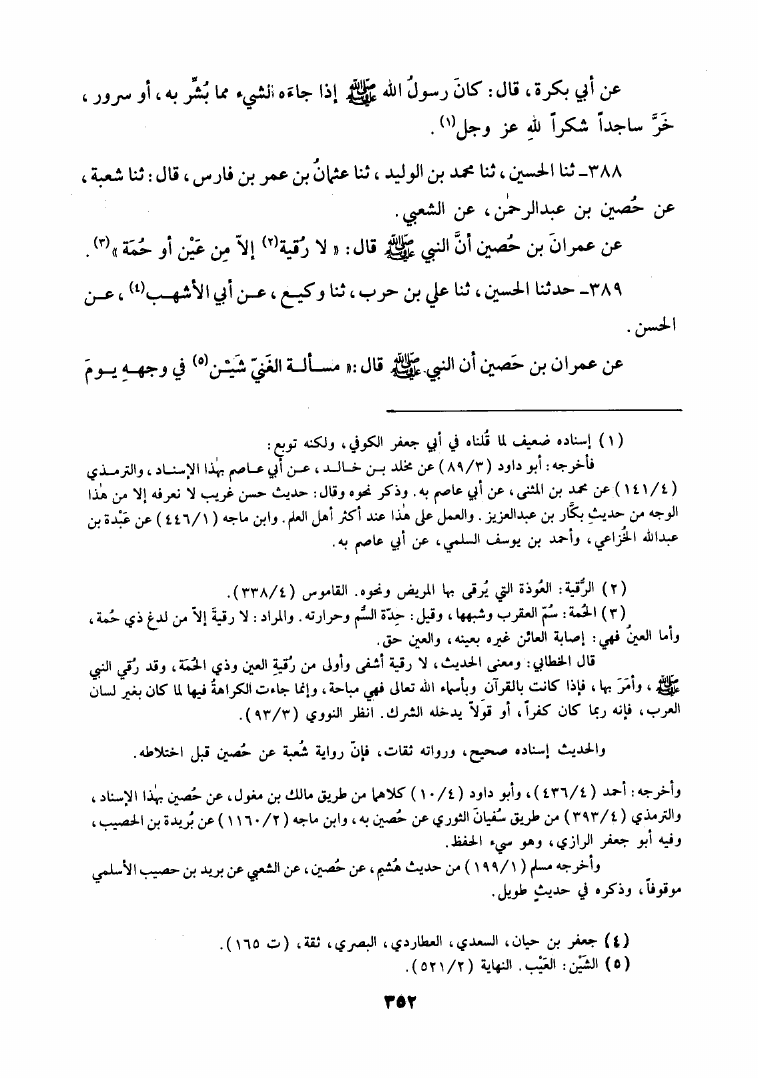 عن أبي بكرة، قال: كانَ رسولُ الله ﷺ إذا جاءَه الشيء مما بُشِّر به، أو سرور،
خَرَّ ساجداً شكراً للهِ عز وجل(١).
٣٨٨ـ ثنا الحسين، ثنا محمد بن الوليد، ثنا عثمانُ بن عمر بن فارس، قال: ثنا شعبة،
عن حُصين بن عبدالرحمٰن، عن الشعبي.
عن عمرانَ بن حُصين أنَّ النبي ﷺ قال: «لا رُقية(٢) إلاّ مِن عَيْن أو حُمَة»(٣).
٣٨٩ـ حدثنا الحسين، ثنا علي بن حرب، ثنا وكيـع، عـن أبي الأشهـب(٤)، عـن
الحسن.
عن عمران بن حَصين أن النبي ﷺ قال: «مسـألـة الغَنيّ شَيْـن(٥) في وجهـهِ يـومَ
(١) إسناده ضعيف لما قُلناه في أبي جعفر الكوفي، ولكنه توبع:
فأخرجه: أبو داود (٨٩/٣) عن مخلد بـن خـالـد، عـن أبي عـاصم بهٰذا الإسنـاد، والترمـذي
(١٤١/٤) عن محمد بن المثنى، عن أبي عاصم به. وذكر نحوه وقال: حديث حسن غريب لا نعرفه إلا من هٰذا
الوجه من حديثِ بكّار بن عبدالعزيز. والعمل على هٰذا عند أكثر أهل العلم. وابن ماجه (٤٤٦/١) عن عَبْدة بن
عبدالله الخُزاعي، وأحمد بن يوسف السلمي، عن أبي عاصم به.
(٢) الرُّقية: العُوذة التي يُرقى بها المريض ونحوه. القاموس (٣٣٨/٤).
(٣) الحُمة: سُمّ العقرب وشبهها، وقيل: حِدّة السُّم وحرارته. والمراد: لا رقيةَ إلاّ من لدغ ذي حُمة،
وأما العينُ فهي: إصابة العائن غيره بعينه، والعين حق.
قال الخطابي: ومعنى الحديث، لا رقية أشفى وأولى من رُقيةِ العين وذي الحُمَة، وقد رُقي النبي
ﷺ، وأمَرَ بها، فإذا كانت بالقرآن وبأسماء الله تعالى فهي مباحة، وإنما جاءت الكراهةُ فيها لما كان بغير لسان
العرب، فإنه ربما كان كفراً، أو قولاً يدخله الشرك. انظر النووي (٩٣/٣).
والحديث إسناده صحيح، ورواته ثقات، فإنّ رواية شُعبة عن حُصين قبل اختلاطه.
وأخرجه: أحمد (٤٣٦/٤)، وأبو داود (١٠/٤) كلاهما من طريق مالك بن مغول، عن حُصين بهٰذا الإسناد،
والترمذي (٣٩٣/٤) من طريق سُفيانَ الثوري عن حُصين به، وابن ماجه (١١٦٠/٢) عن بُريدة بن الحصيب،
وفيه أبو جعفر الرازي، وهو سيء الحفظ.
وأخرجه مسلم (١٩٩/١) من حديث هُشيم، عن حُصين، عن الشعبي عن بريد بن حصيب الأسلمي
موقوفاً، وذكره في حديثٍ طويل.
(٤) جعفر بن حيان، السعدي، العطاردي، البصري، ثقة، (ت ١٦٥).
(٥) الشَّيْن: العَيْب. النهاية (٥٢١/٢).
٣٥٢